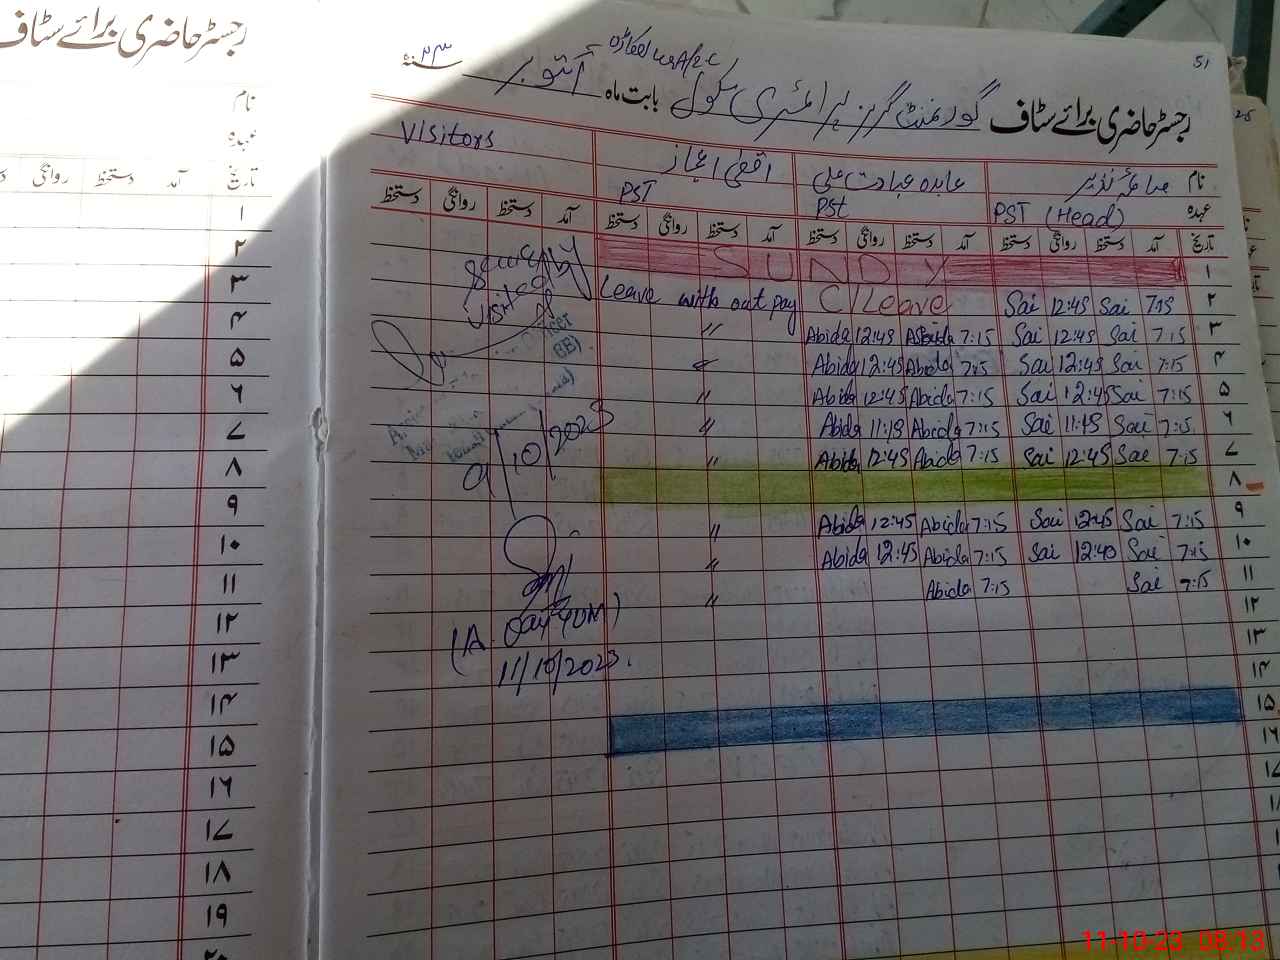 رجسٹر حاضری برائے سٹاف
نام
عہدہ
تاریخ آمد دستخط روانگی
۱
۲
۳
۴
۵
۶
۷
۸
۹
۱۰
۱۱
۱۲
۱۳
۱۴
۱۵
۱۶
۱۷
۱۸
۱۹
۲۰
51
رجسٹر حاضری برائے سٹاف گورنمنٹ گرلز پرائمری سکول اوکاڑہ بابت ماہ اکتوبر ۲۳ سنہ
نام صائمہ نذیر عابدہ عبادت علی اقصیٰ اعجاز Visitors
عہدہ PST (Head) PSt PST
تاریخ آمد دستخط روانگی دستخط آمد دستخط روانگی دستخط آمد دستخط روانگی دستخط آمد دستخط روانگی دستخط
۱ SUNDY
۲ Leave with out pay C/Leave Sai 12:45 Sai 7:15
۳ " Abida 12:45 Abida 7:15 Sai 12:45 Sai 7:15
۴ " Abida 12:45 Abida 7:15 Sai 12:45 Sai 7:15
۵ " Abida 12:45 Abida 7:15 Sai 12:45 Sai 7:15
۶ " Abida 11:15 Abida 7:15 Sai 11:45 Sai 7:15
۷ " Abida 12:45 Abida 7:15 Sai 12:45 Sai 7:15
۸
۹ " Abida 12:45 Abida 7:15 Sai 12:45 Sai 7:15
۱۰ " Abida 12:45 Abida 7:15 Sai 12:40 Sai 7:15
۱۱ " Abida 7:15 Sai 7:15
۱۲
۱۳
۱۴
۱۵
۱۶
۱۷
visited
9/10/2023
11/10/2023.
25
11-10-23 08:13